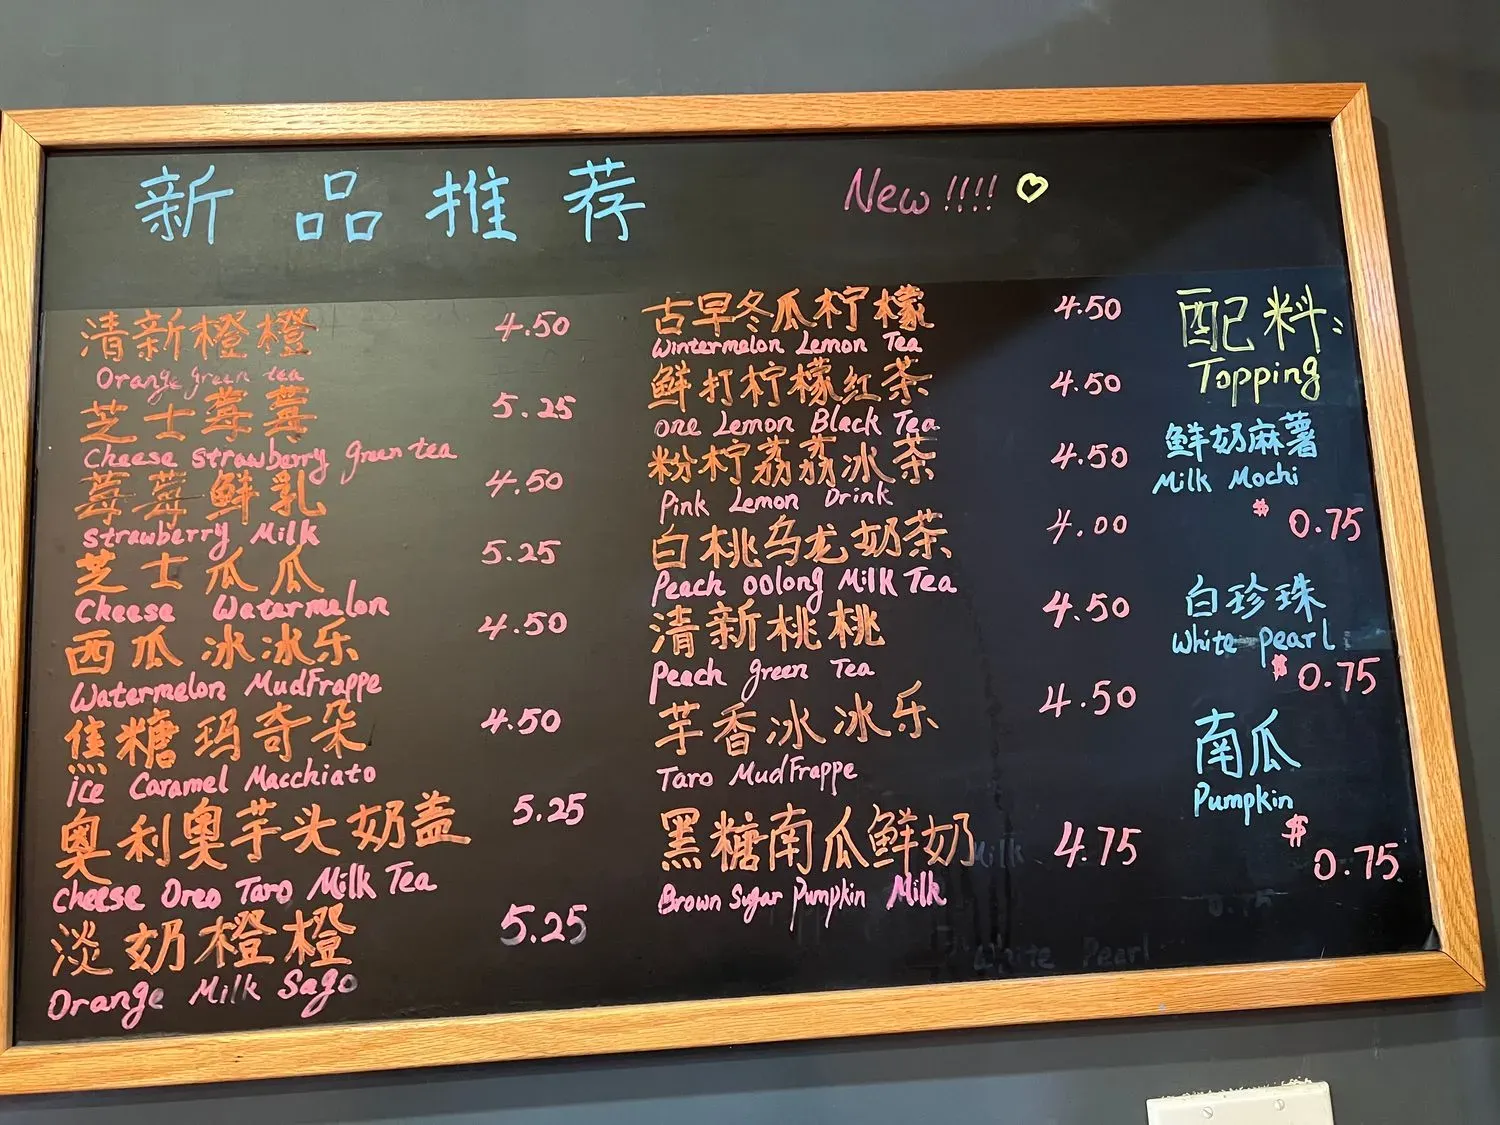 新品推荐 New!!!! ♡
清新橙橙 4.50
Orange green tea
芝士莓莓 5.25
Cheese strawberry green tea
莓莓鲜乳 4.50
Strawberry Milk
芝士瓜瓜 5.25
Cheese Watermelon
西瓜冰冰乐 4.50
Watermelon MudFrappe
焦糖玛奇朵 4.50
ice Caramel Macchiato
奥利奥芋头奶盖 5.25
Cheese Oreo Taro Milk Tea
淡奶橙橙 5.25
Orange Milk Sago
古早冬瓜柠檬 4.50
Wintermelon Lemon Tea
鲜打柠檬红茶 4.50
one Lemon Black Tea
粉柠荔荔冰茶 4.50
Pink Lemon Drink
白桃乌龙奶茶 4.00
Peach oolong Milk Tea
清新桃桃 4.50
Peach green Tea
芋香冰冰乐 4.50
Taro MudFrappe
黑糖南瓜鲜奶 4.75
Brown Sugar Pumpkin Milk
配料:
Topping
鲜奶麻薯
Milk Mochi
$ 0.75
白珍珠
White pearl
$ 0.75
南瓜
Pumpkin
$ 0.75
Milk
White Pearl